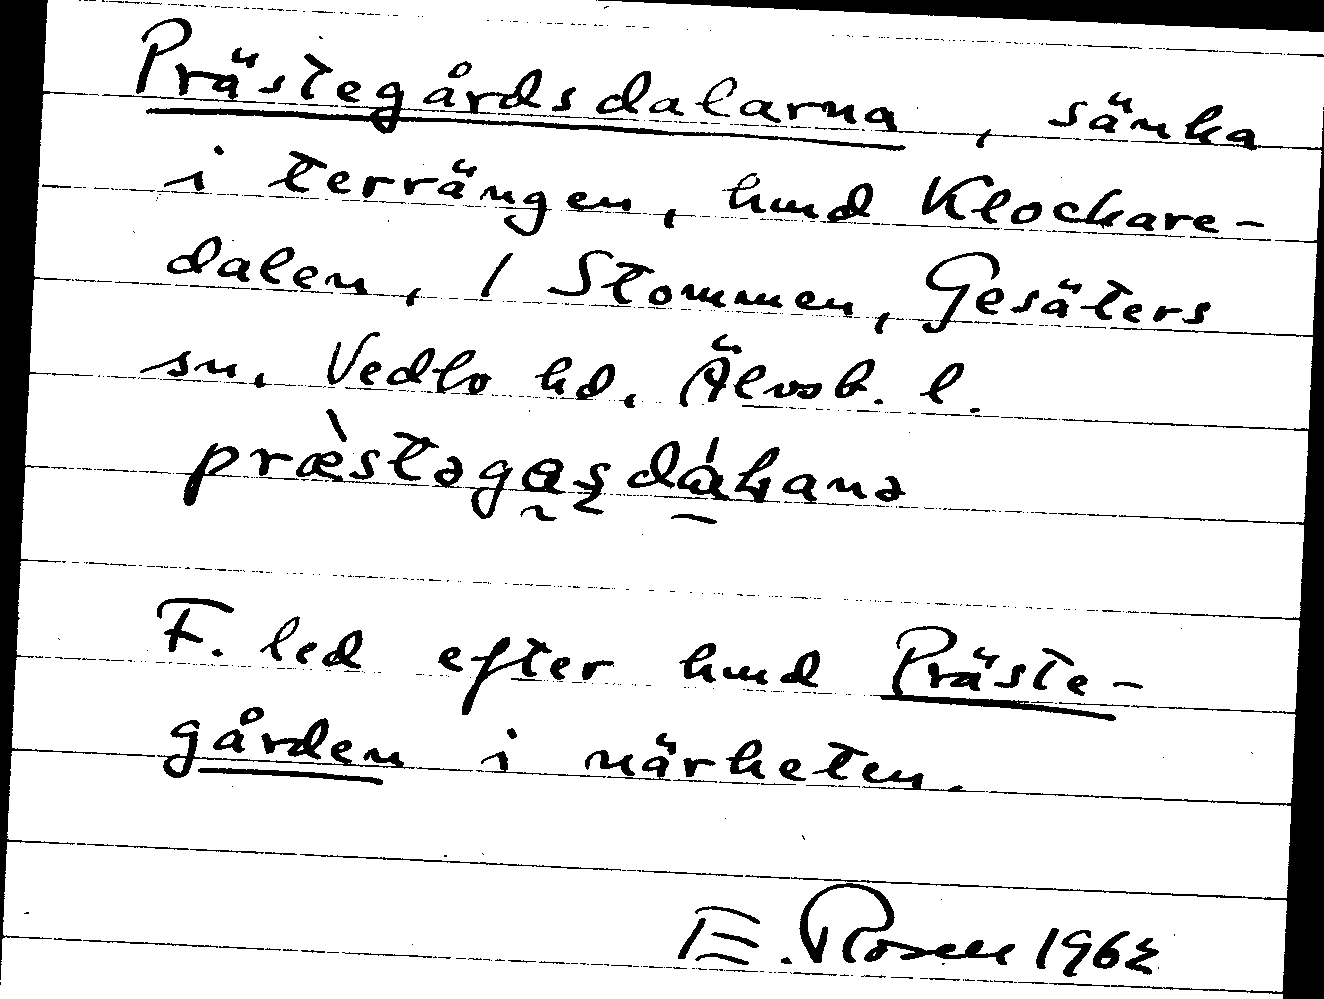 Prästegårdsdalarna, sänka
i terrängen, hmd Klockare-
dalen, / Stommen, Gesäters
sn, Vedbo hd, Älvsb. l.
F. led efter hmd Präste-
gården i närheten.
E. Rosell 1962